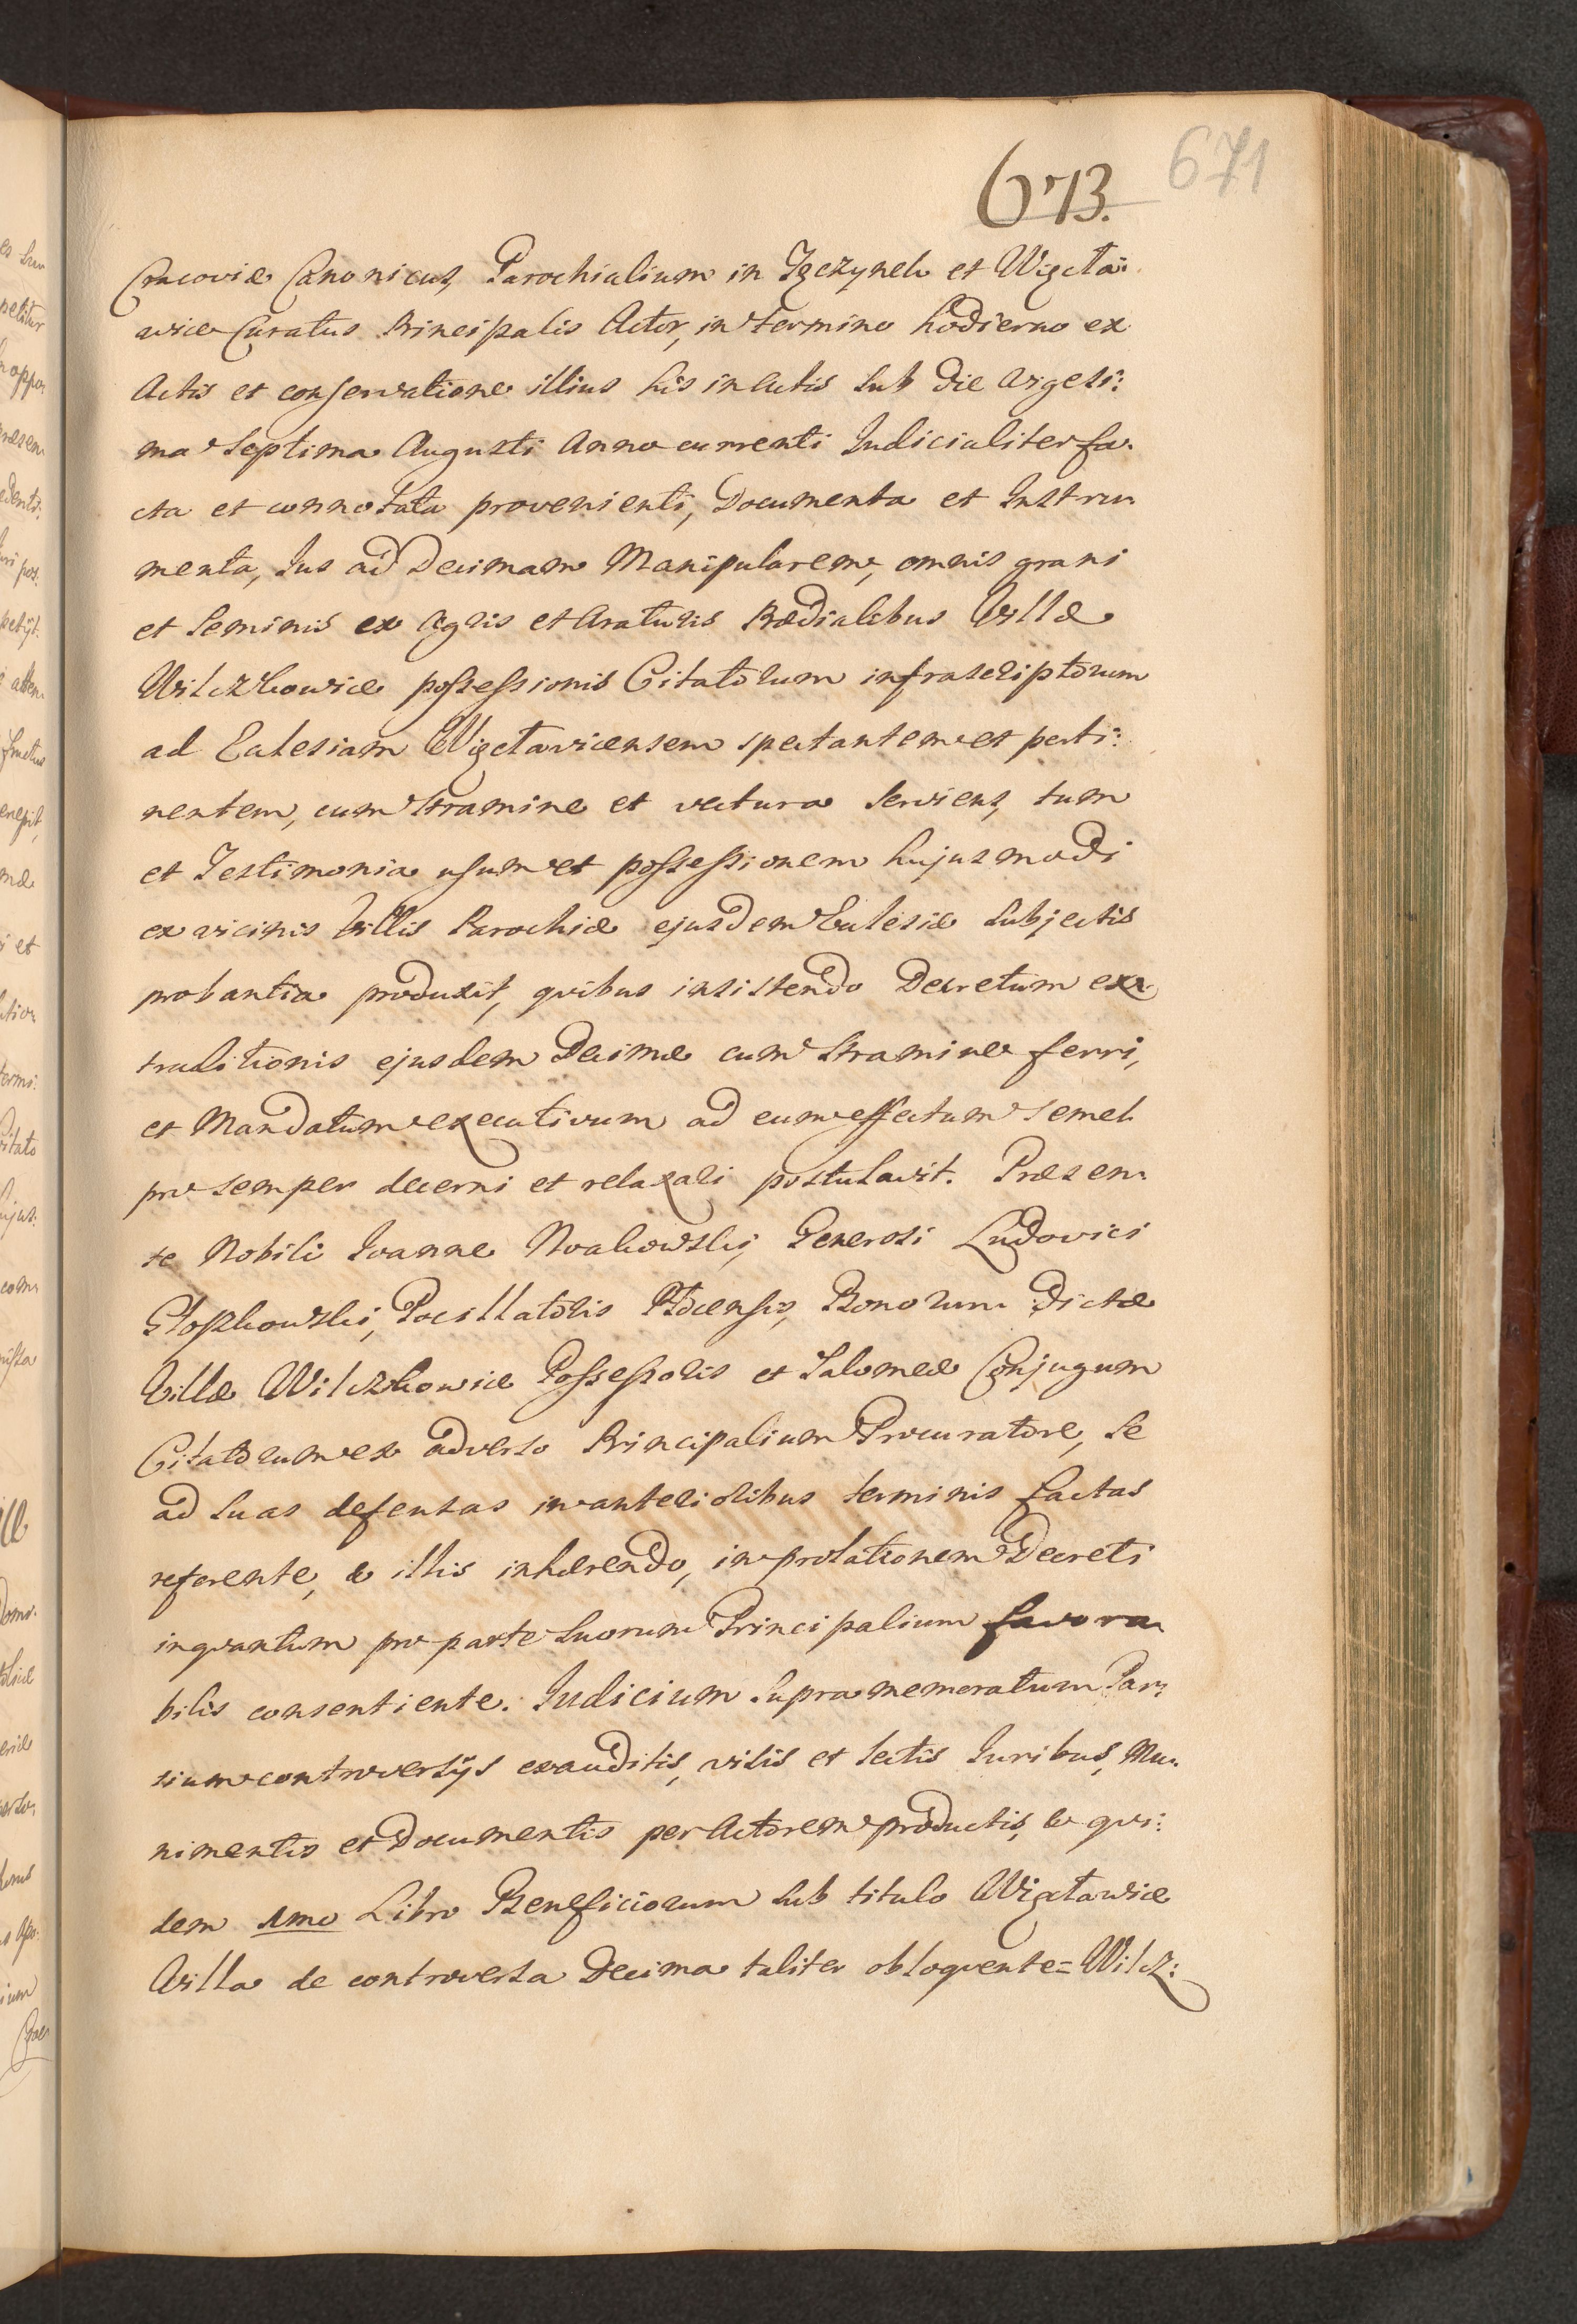 673. 671
Cracoviæ Canonicus, Parochialium in Tęczynek et Więcła:
wice Curatus Principalis Actor, in termino hodierno ex
Actis et conservatione illius his in Actis sub die vigesi:
ma Septima Augusti Anno currenti Judicialiter fa:
cta et connotata provenienti, Documenta et Instru
menta, Jus ad Decimam Manipularem, omnis grani
et seminis ex Agris et Araturis Prædialibus Villæ
Wilczkowice possessionis Citatorum infrascriptorum
ad Eclesiam Więcłavicensem spectantem et perti:
nentem, cum stramine et vectura serviens, tum
et Testimonia usum et possessionem hujusmodi
ex vicinis Villis Parochiæ ejusdem Eclesiæ subjectis
probantia produxit, quibus insistendo Decretum ex
traditionis ejusdem Decimæ cum stramine ferri,
et Mandatum executivum ad eum effectum semel
pro semper decerni et relaxari postulavit. Præsen
te Nobili Joanne Noakowski, Generosi Ludovici
Głoszkowski, Pocillatoris Płocensis, Bonorum dictæ
Villæ Wilczkowice Possessoris et Salomeæ Conjugum
Citatorum ex adverso Principalium Procuratore, se
ad suas defensas in anterioribus terminis factas
referente, & illis inhærendo, in prolationem Decreti
inquantum pro parte suorum Principalium favora
bilis consentiente. Judicium supramemoratum Par:
tium controversijs exauditis, visis et lectis Juribus, Mu:
nimentis et Documentis per Actorem productis, & qui:
dem 1mo Libro Beneficiorum sub titulo Więcławice
Villa de controversa Decima taliter obloquente= Wilcz: